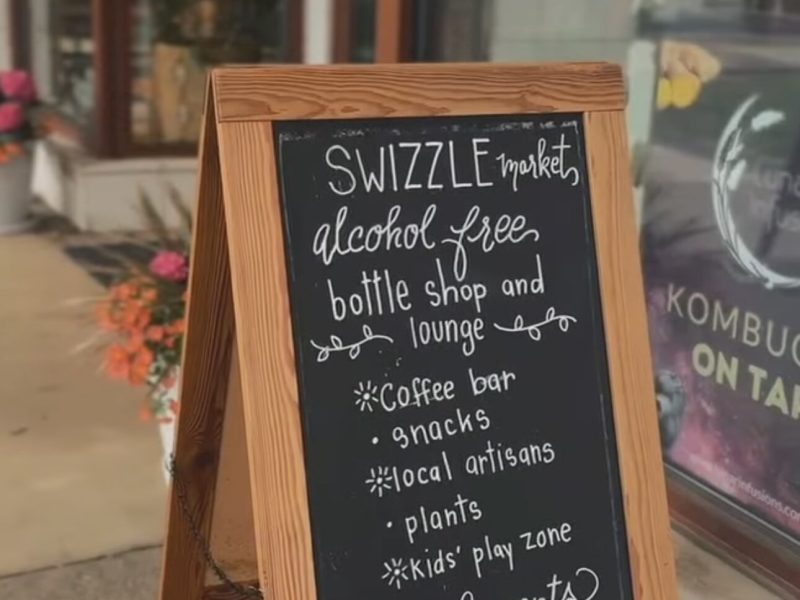 SWIZZLE market,
alcohol free
bottle shop and
lounge
Coffee bar
• snacks
local artisans
• plants
kids' play zone
KOMBUC
ON TAP